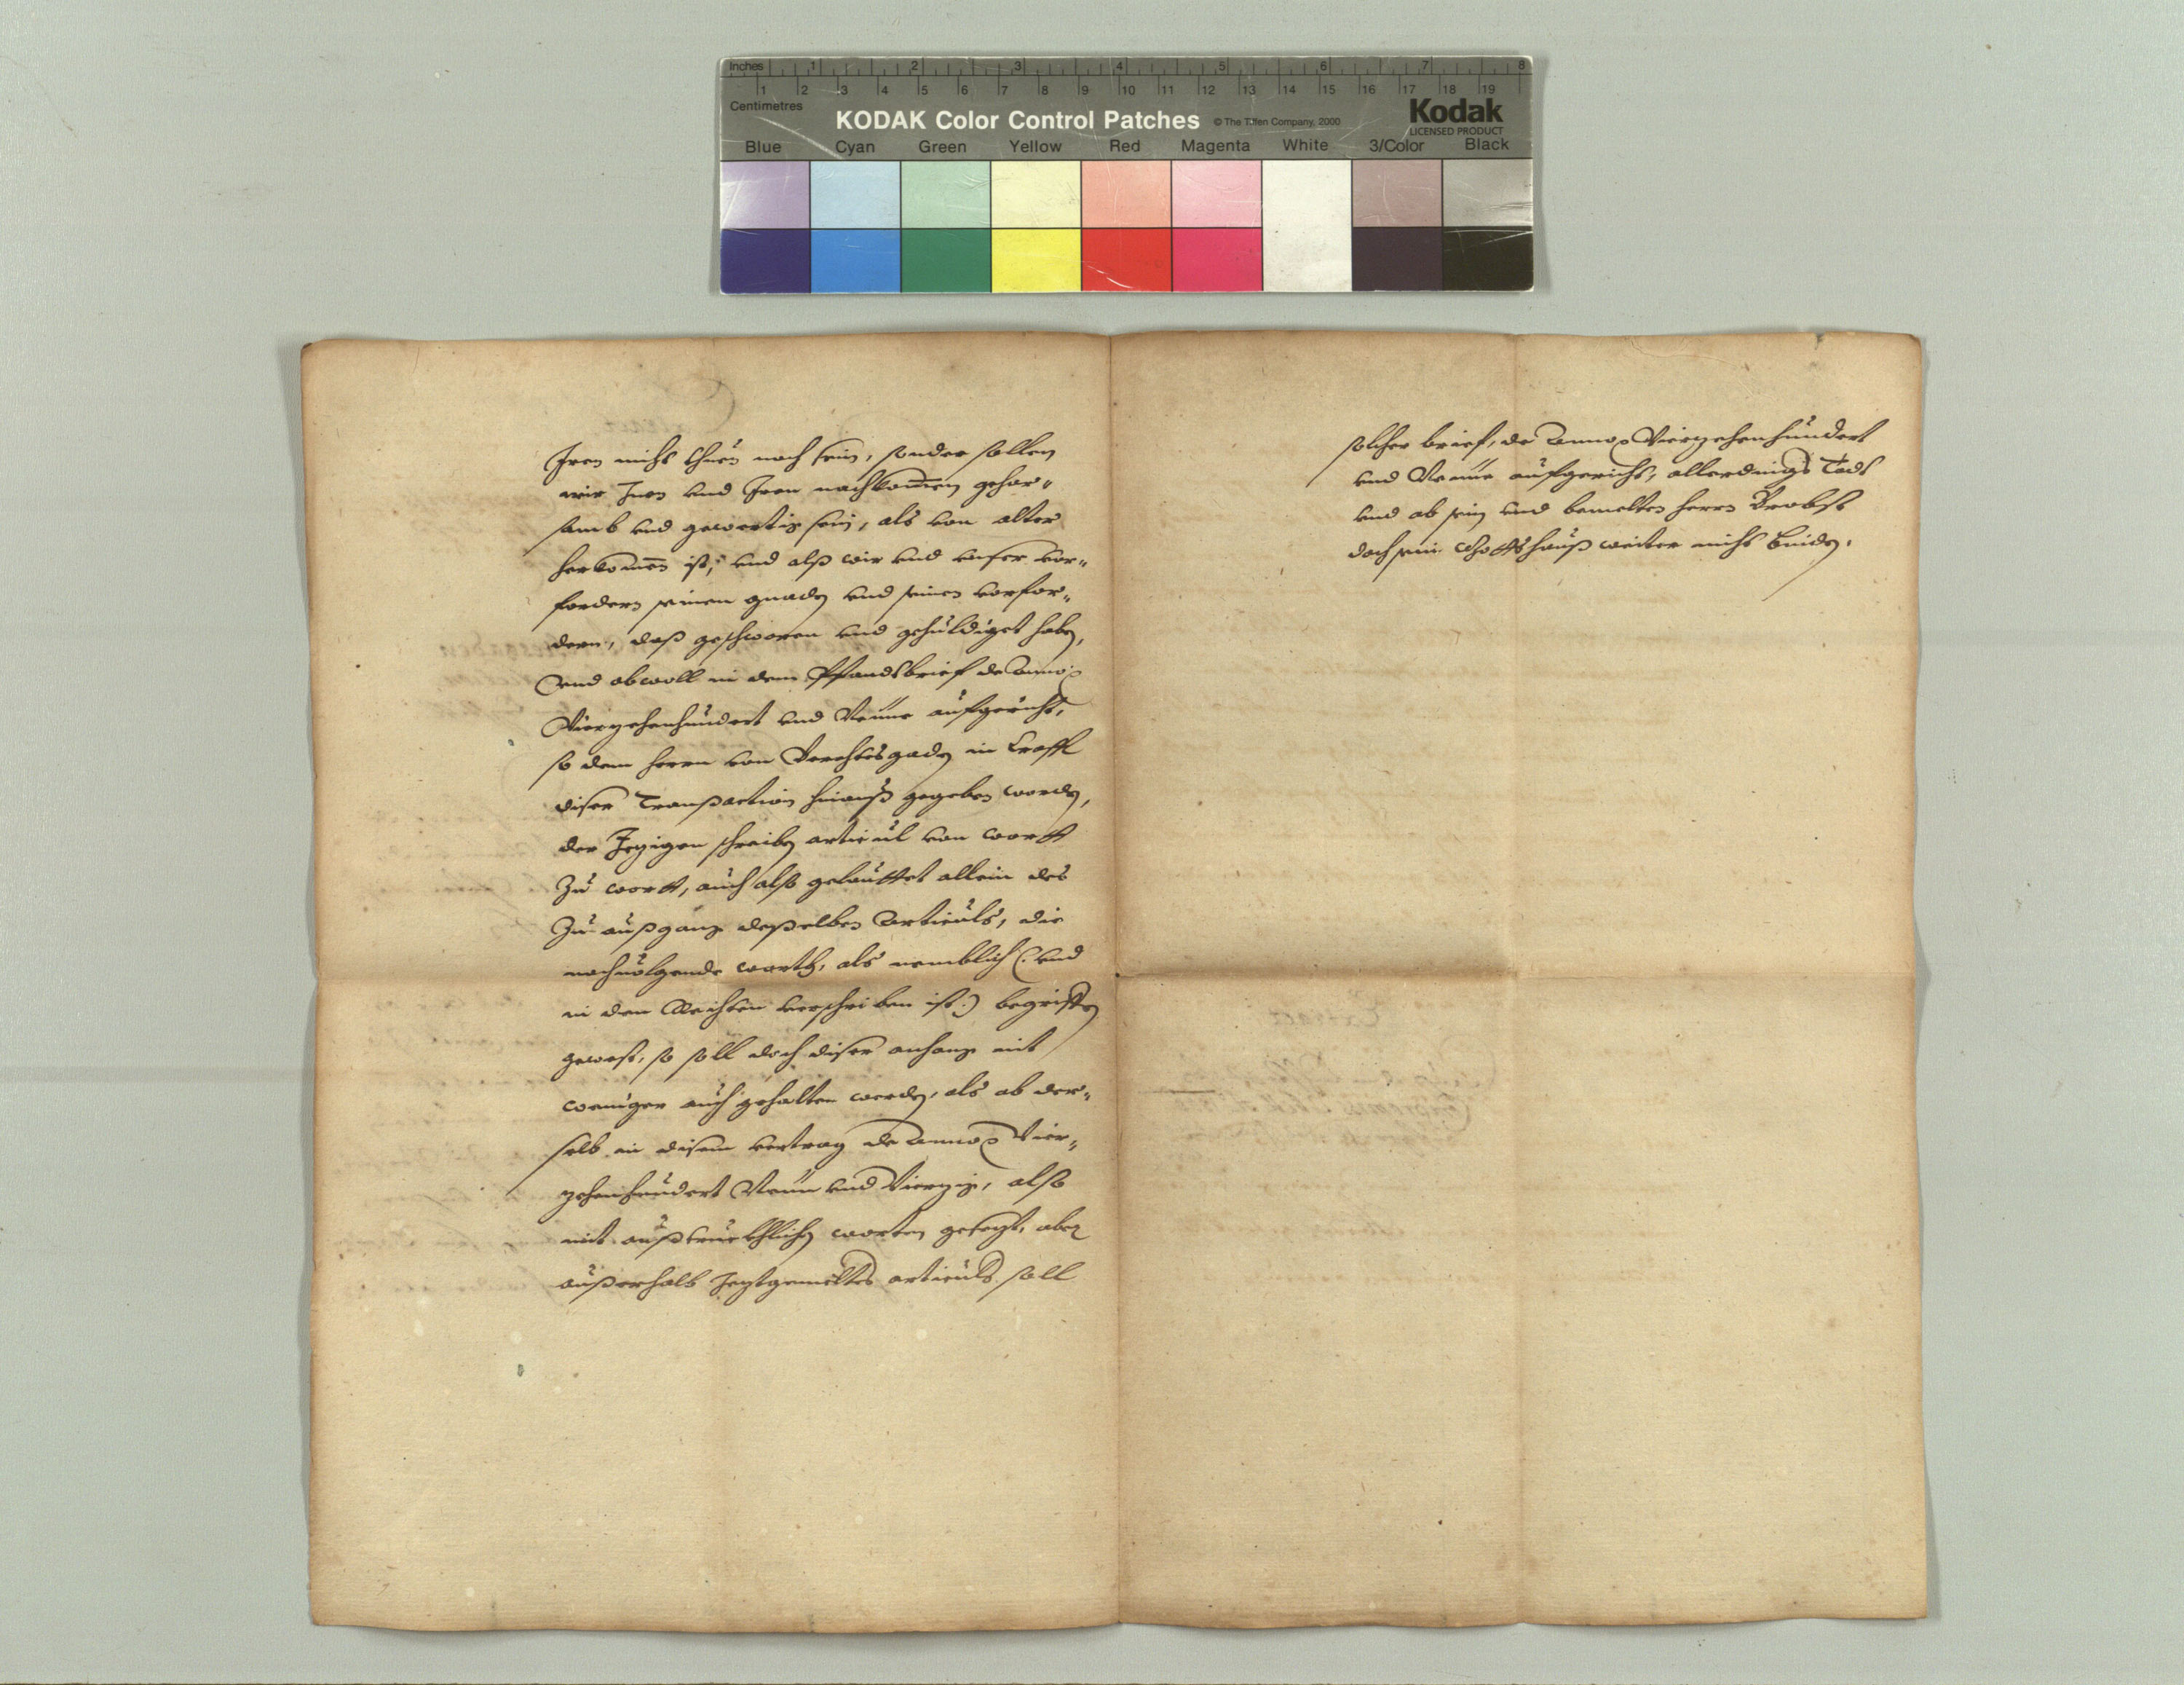 Inches 1 2 3 4 5 6 7 8
1 2 3 4 5 6 7 8 9 10 11 12 13 14 15 16 17 18 19
Centimetres
KODAK Color Control Patches © The Tiffen Company, 2000 Kodak
LICENSED PRODUCT
Blue Cyan Green Yellow Red Magenta White 3/Color Black
Iren nichts thuen noch sein, sonder sollen
wir Inen vnd Iren nachkomen gehor„
samb vnd gewertig sein, als von alter
herkomen ist, vnd alß wir vnd vnser vor„
fordern seinen gnaden vnd seinen vorfor„
dern, daß geschworen vnd gehuldiget haben,
Vnd obwoll in dem Pfandsbrief de Anno
Vierzehenhundert vnd Neune aufgericht,
so dem herrn von Berchtesgaden in Crafft
diser Transaction hinauß gegeben worden,
der Jezigen schreiben articul von wortt
Zu wortt, auch also gelauttet allein das
Zu außgang desselben Articuls, die
nachuolgende worth, als nemblich (: vnd
in den verschriben ist :) begriffen
gewest, so soll doch diser anhang nit
weniger auch gehalten werden, als ob der„
selb in disem vertrag de Anno Vier„
zehenhundert Neun vnd Vierzig, also
mit außtruckhlichen worten gesezt, aber
ausserhalb Jeztgemeltes articuls soll
solcher brief, de Anno Vierzehenhundert
vnd Neune aufgericht, allerdings Todt
vnd ab sein vnd bemelten herrn Brobst
noch sein Gottshauß weiter nichts binden.
Extract